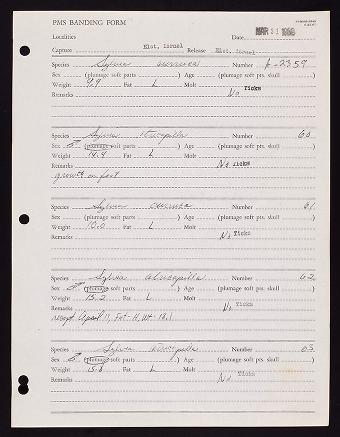 PMS BANDING FORM
Localities Date MAR 31 1968
Capture Elat, Israel Release Elat, Israel
Species Sylvia curruca Number A-2359
Sex (plumage soft parts) Age (plumage soft pts. skull)
Weight 9.9 Fat L Molt
Remarks No Ticks
Species Sylvia atricapilla Number 60
Sex ♂ (plumage soft parts) Age (plumage soft pts. skull)
Weight 14.9 Fat L Molt
Remarks No Ticks
growth on foot
Species Sylvia curruca Number 61
Sex (plumage soft parts) Age (plumage soft pts. skull)
Weight 10.0 Fat L Molt
Remarks No Ticks
Species Sylvia atricapilla Number 62
Sex ♂ (plumage soft parts) Age (plumage soft pts. skull)
Weight 15.2 Fat L Molt
Remarks No Ticks
recapt April 11, Fat-H, Wt-18.1
Species Sylvia atricapilla Number 63
Sex ♂ (plumage soft parts) Age (plumage soft pts. skull)
Weight 15.8 Fat L Molt
Remarks No Ticks